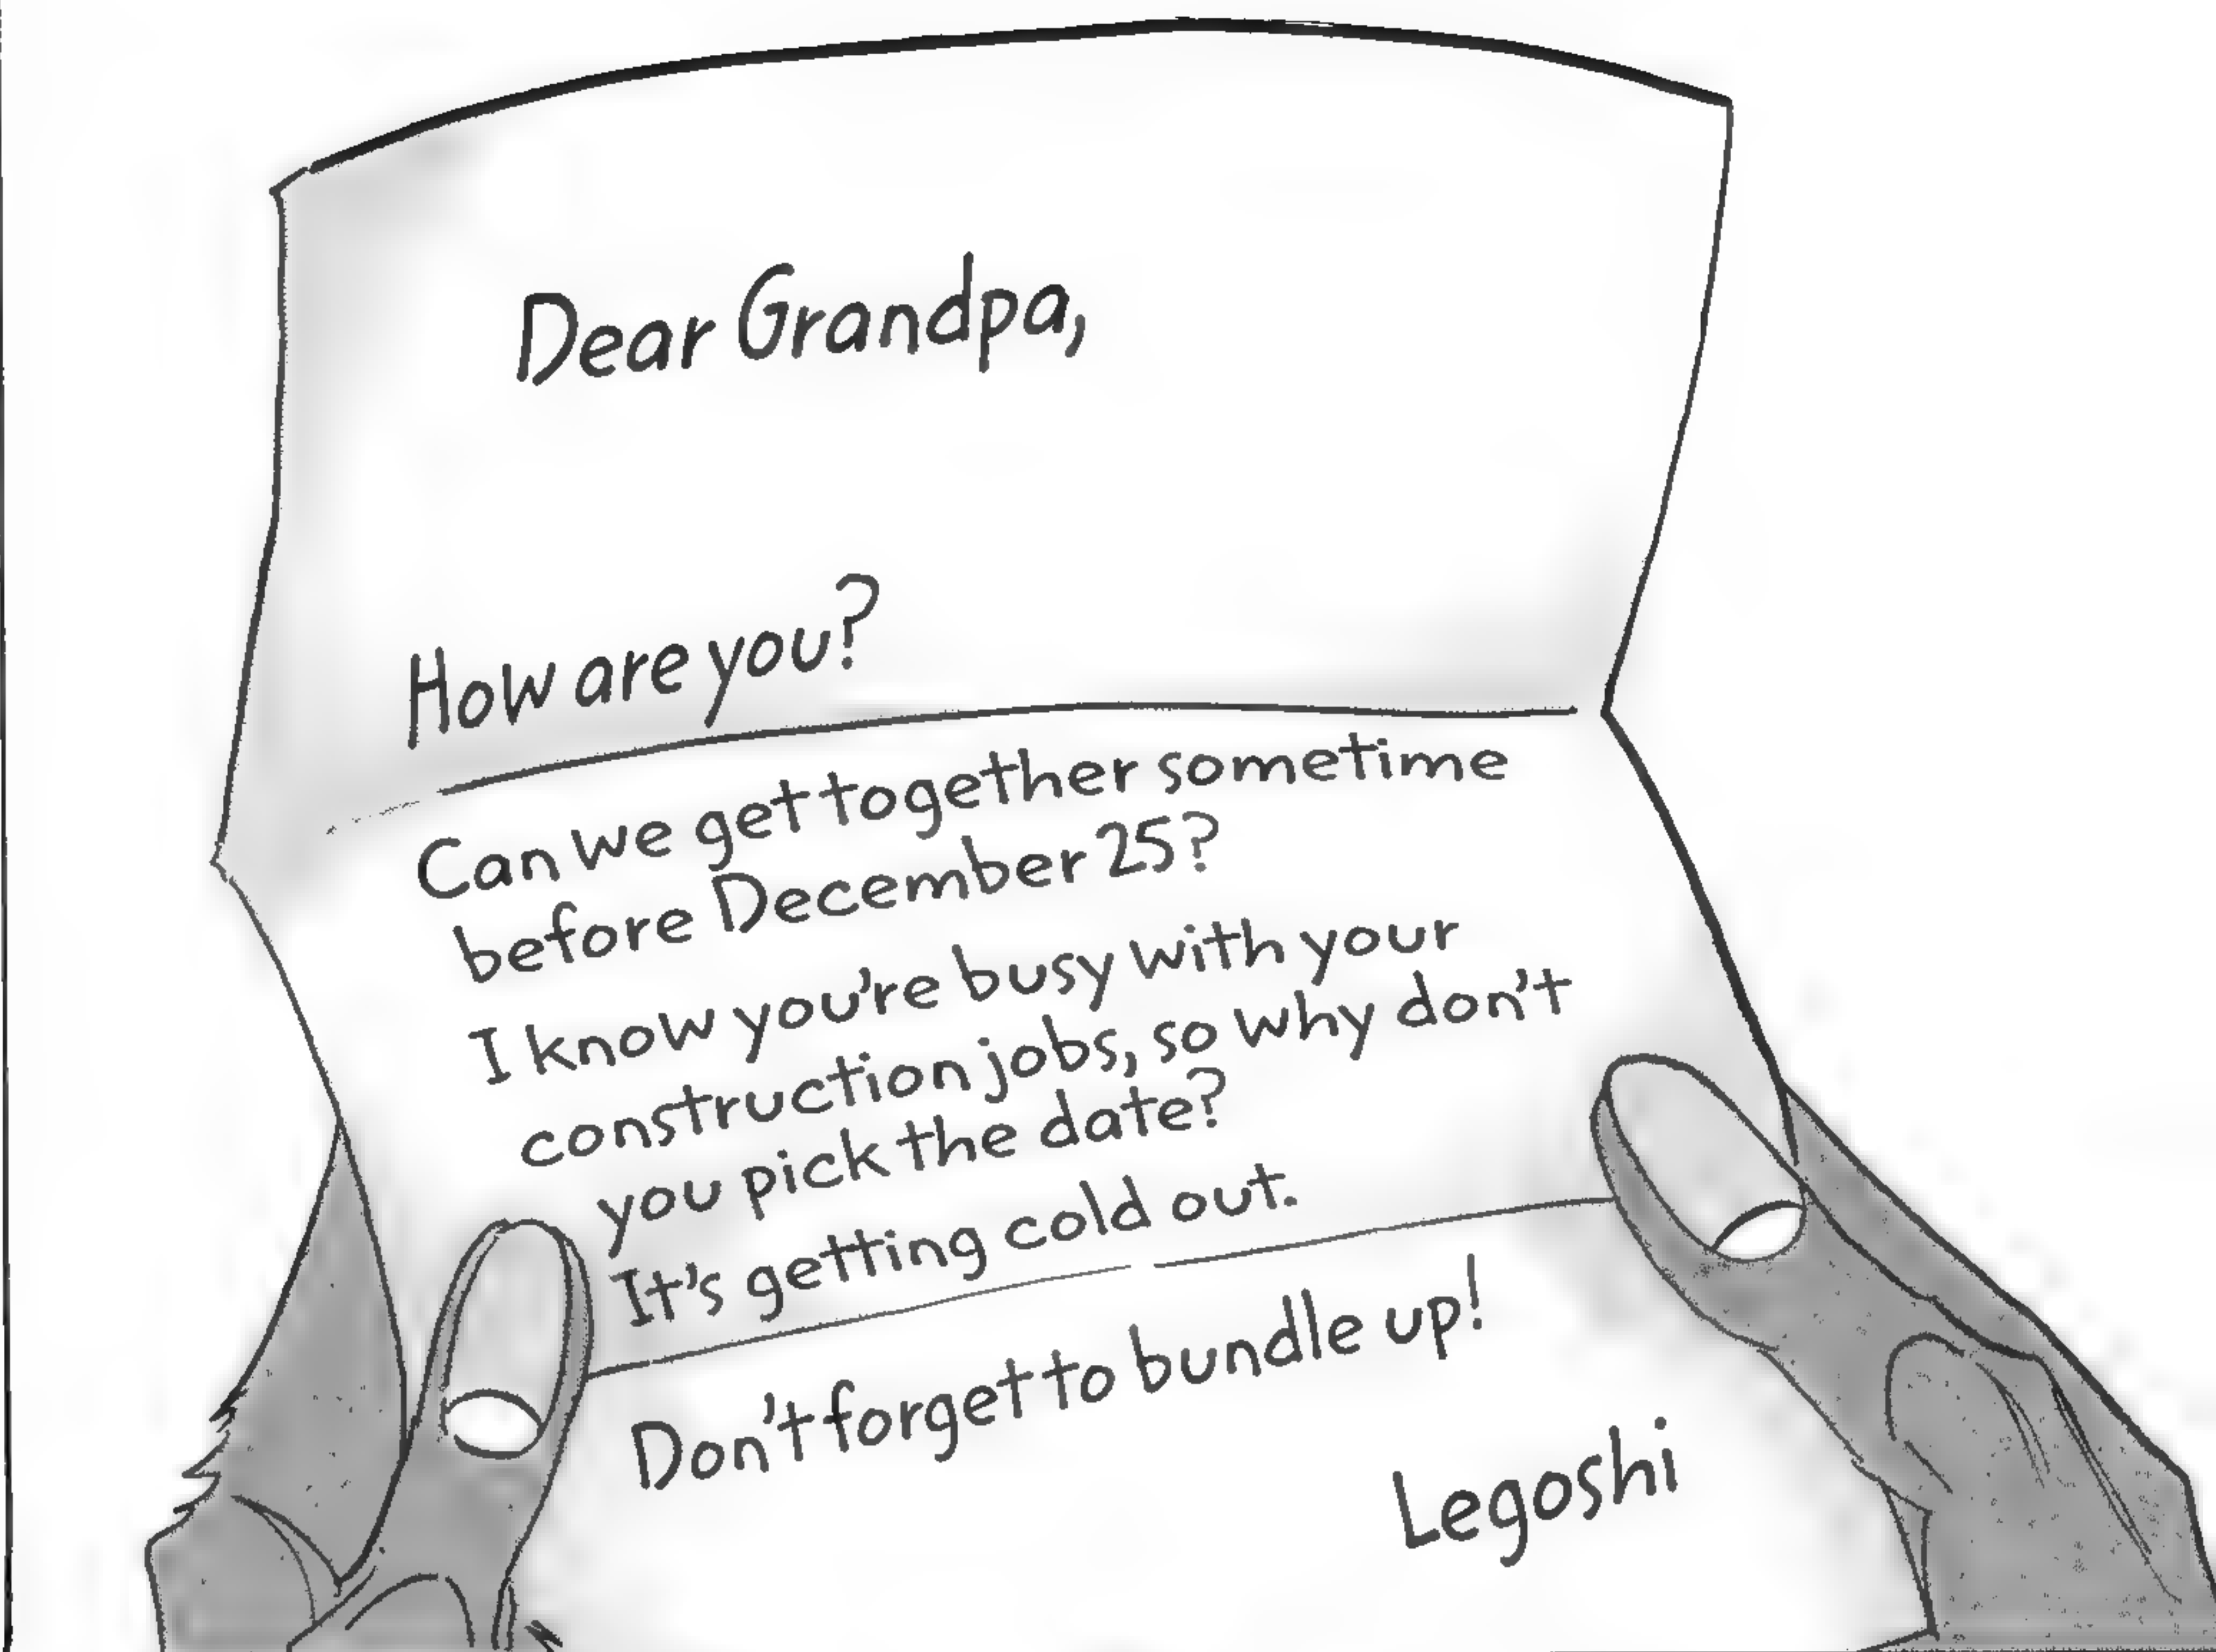 Dear Grandpa,
How are you?
Can we get together sometime
before December 25?
I know you're busy with your
construction jobs, so why don't
you pick the date?
It's getting cold out.
Don't forget to bundle up!
Legoshi